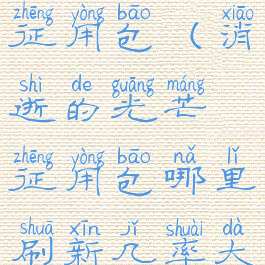 zhēng yòng bāo xiāo
征用包（消
shì de guāng máng
逝的光芒
zhēng yòng bāo nǎ lǐ
征用包哪里
shuā xīn jī shuài dà
刷新几率大